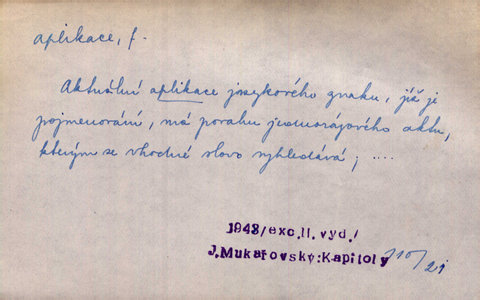 aplikace, f.
Aktuální aplikace jazykového znaku, jíž je
pojmenování, má povahu jednorázového aktu,
kterým se vhodné slovo vyhledává; ....
1948/exc.II.vyd./
J.Mukařovský:Kapitoly I 10/21